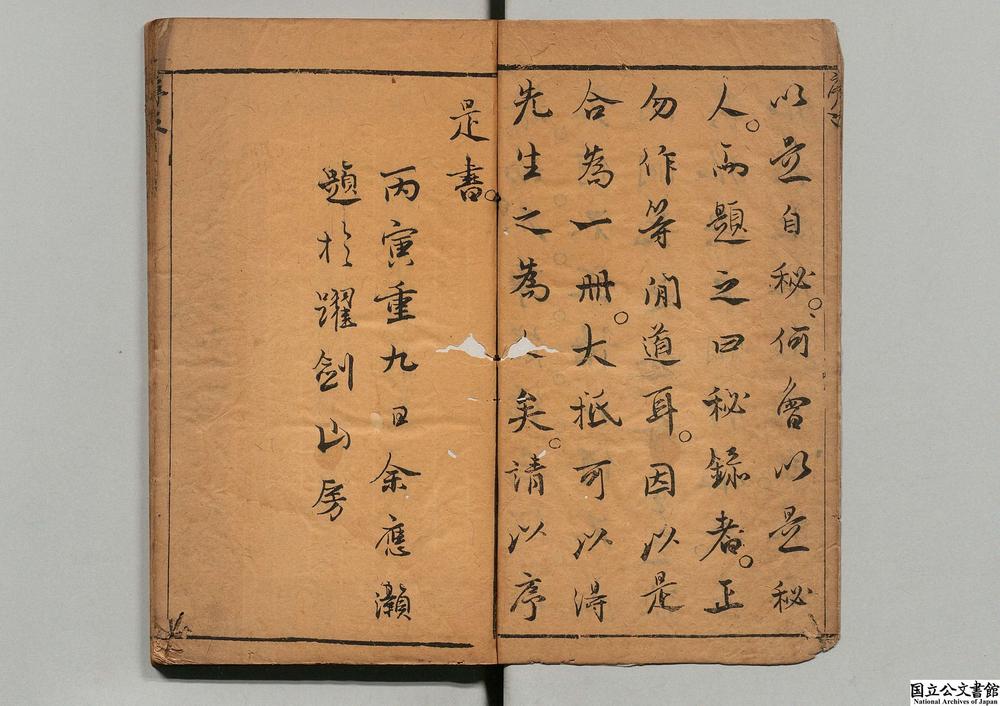 以是自秘。何曾以是秘
人。而題之曰秘錄者。正
勿作等閒道耳。因以是
合為一冊。大抵可以得
先生之為人矣。請以序
是書。
丙寅重九日余應灝
題於躍劍山房
国立公文書館
National Archives of Japan